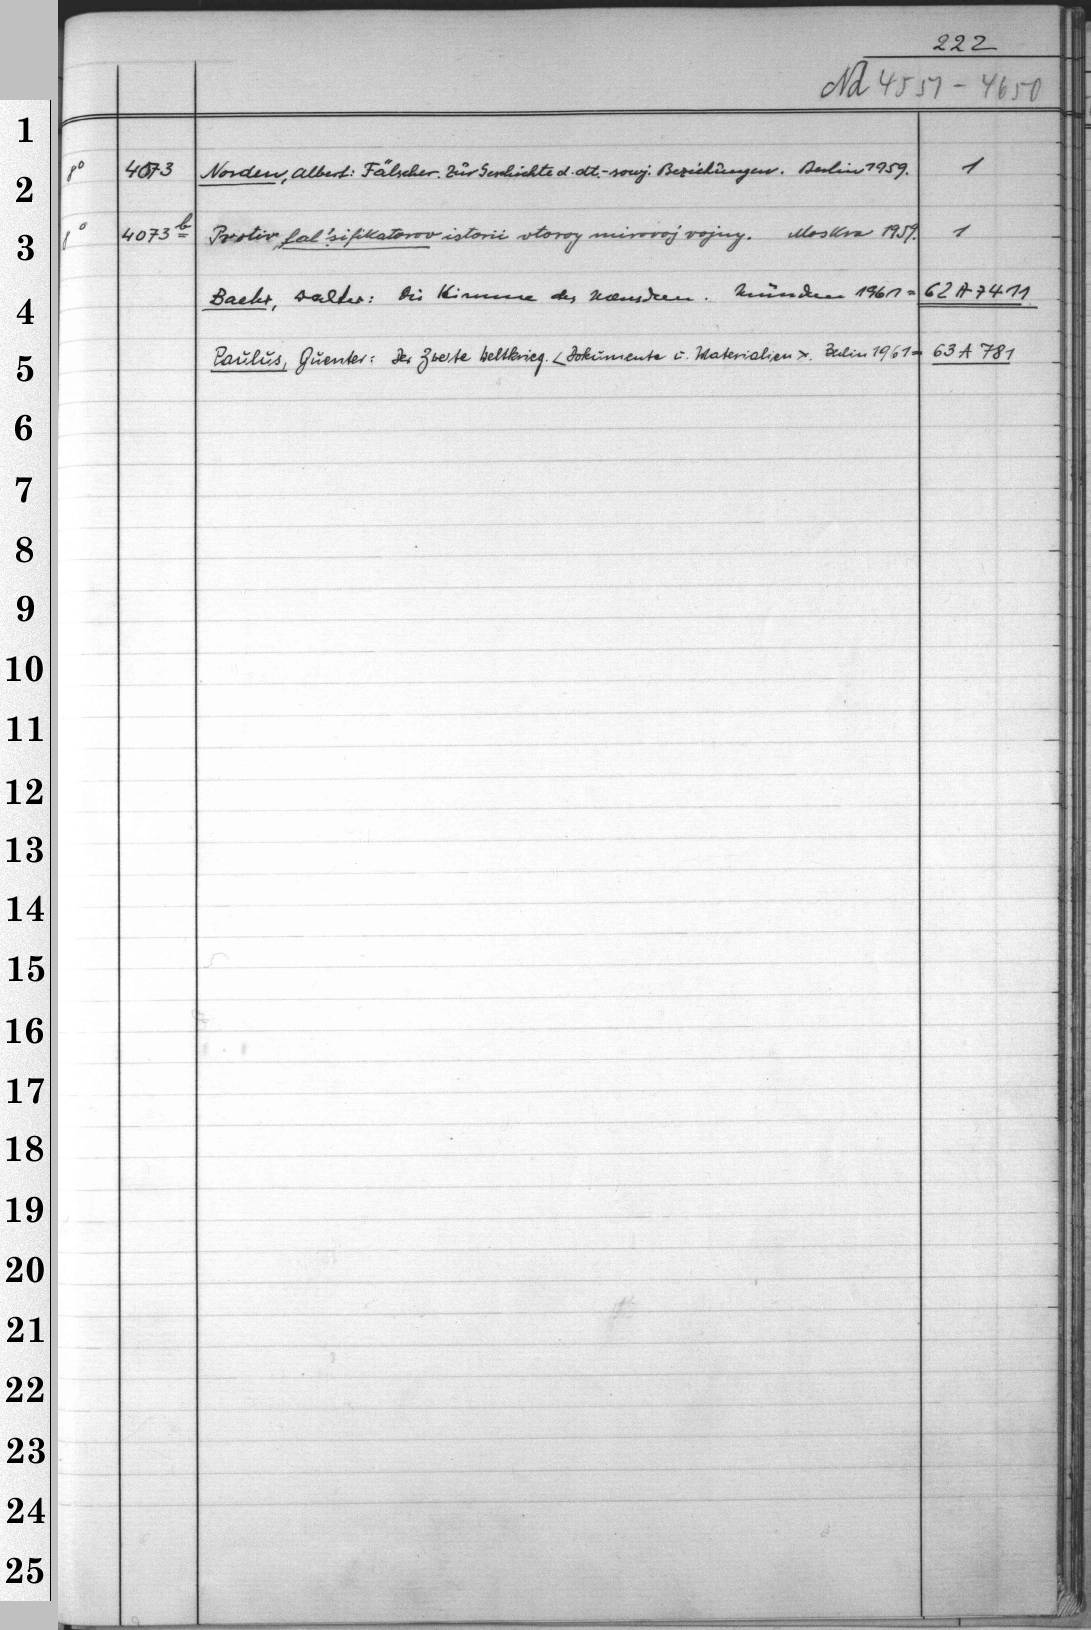 222
Nd 4551 - 4650
1
8° 4073 Norden, Albert: Fälscher. Zur Geschichte d. dt.-sowj. Beziehungen. Berlin 1959. 1
2
8° 4073 b Protiv fal'sifikatorov istorii vtoroy mirovoj vojny. Moskva 1959. 1
3
Baehr, Walter: Die Kimme des Menschen. München 1961 = 62 A 7411
4
Paulus, Guenter: Der Zweite Weltkrieg. <Dokumente u. Materialien>. Berlin 1961 = 63 A 781
5
6
7
8
9
10
11
12
13
14
15
16
17
18
19
20
21
22
23
24
25